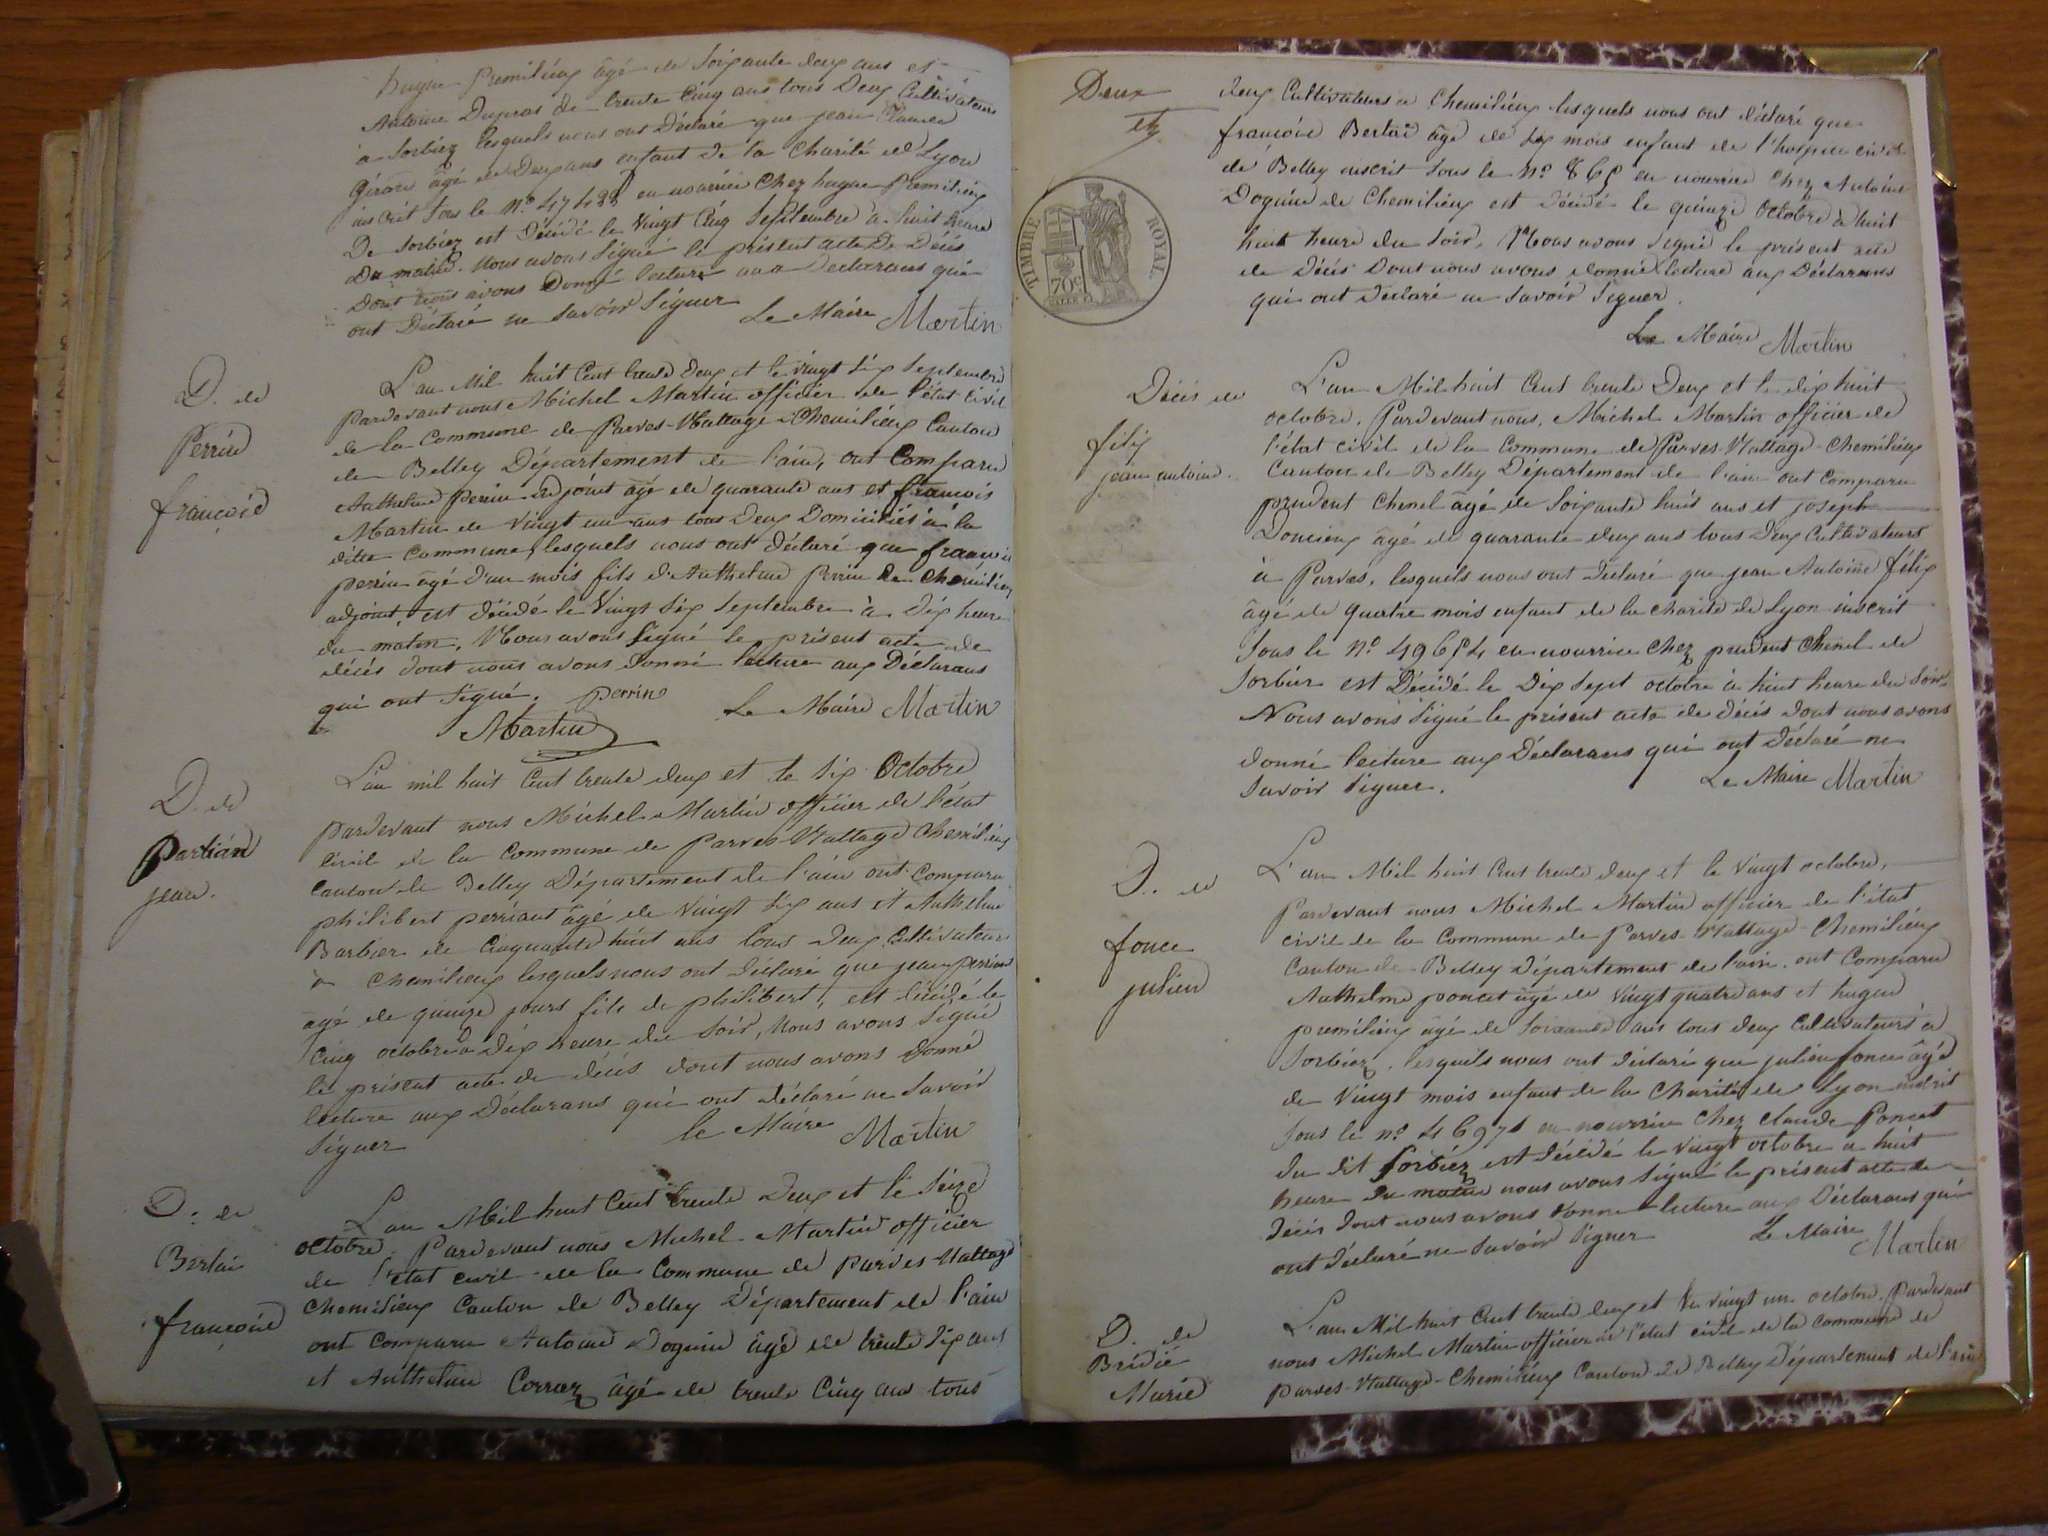 hugue Premilieux âgé de Soixante deux ans et
Antoine Dupras de trente Cinq ans tous Deux Cultivateurs
a Sorbiez lesquels nous ont Déclaré que jean Claude
Girard âgé de Deux ans enfant de la Charité de Lyon
inscrit Sous le N.º en nourrice Chez hugue Premilieux
De Sorbiez est Décédé le Vingt Cinq Septembre a huit heure
Du matin. Nous avons Signé le présent acte De Décès
Dont nous avons Donné lecture aux Declarans qui
ont Déclaré ne Savoir Signer
Le Maire Martin
D. de
Perrin
françois
L'an Mil huit Cent trente Deux et le vingt Six Septembre
Pardevant nous Michel Martin officier de l'état Civil
de la Commune de Parves-Nattage-Chemilieux Canton
de Belley Département de l'ain, ont Comparu
Anthelme Perrin adjoint âgé de quarante ans et françois
Martin de vingt un ans tous Deux Domiciliés à la
dite Commune, lesquels nous ont déclaré que françois
perrin âgé d'un mois fils d'Anthelme Perrin de Chemilieux
adjoint, est décédé le Vingt Six Septembre à Dix heure
du matin, Nous avons Signé le présent acte de
décès dont nous avons Donné lecture aux Déclarans
qui ont Signé. Perrin
Le Maire Martin
Martin
D. de
Partian
jean.
L'an mil huit Cent trente deux et le Six Octobre
pardevant nous Michel Martin officier de l'état
Civil de la Commune de Parves-Nattage Chemilieux
Canton de Belley Département de l'ain ont Comparu
philibert perriant âgé de Vingt Six ans et Anthelme
Barbier de Cinquante huit ans tous Deux Cultivateurs
a Chemilieux lesquels nous ont Déclaré que jean
âgé de quinze jours fils de philibert, est décédé le
Cinq octobre à Dix heure du Soir, Nous avons Signé
le présent acte de décès dont nous avons Donné
lecture aux Déclarans qui ont déclaré ne Savoir
Signer
le Maire Martin
D. de
Bertai
françoise
L'an Mil huit Cent trente Deux et le Seize
octobre. Pardevant nous Michel Martin officier
de l'etat civil de la Commune de Parves-Nattage
Chemilieux Canton de Belley Département de l'ain
ont Comparu Antoine Doguin âgé de trente Six ans
et Anthelme Corraz âgé de trente Cinq ans tous
Deux
TIMBRE ROYAL
70c
deux Cultivateurs a Chemilieux lesquels nous ont déclaré que
françoise Bertai âgé de Six mois enfant de l'hospice civil
de Belley inscrit Sous le N.º en nourrice Chez Antoine
Doguin de Chemilieux est Décédé le quinze Octobre à huit
huit heure du Soir. Nous avons Signé le présent acte
de Décès Dont nous avons donné lecture aux Déclarans
qui ont Déclaré ne Savoir Signer.
Le Maire Martin
Décès de
félix
jean antoine.
L'an Mil huit Cent trente Deux et le dix huit
octobre, Pardevant nous, Michel Martin officier de
l'état civil de la Commune de Parves-Nattage-Chemilieux
Canton de Belley Département de l'ain ont Comparu
prudent Chenel âgé de Soixante huit ans et joseph
Doncieux âgé de quarante deux ans tous Deux Cultivateurs
à Parves, lesquels nous ont Déclaré que jean Antoine félix
âgé de quatre mois enfant de la Charité de Lyon inscrit
Sous le N.º 49654 en nourrice Chez prudent Chenel de
Sorbier est Décédé le Dix Sept octobre à huit heure du Soir.
Nous avons Signé le présent acte de décès dont nous avons
donné lecture aux Déclarans qui ont Déclaré ne
Savoir Signer.
Le Maire Martin
D. de
fonce
julien
L'an Mil huit Cent trente deux et le vingt octobre,
Pardevant nous Michel Martin officier de l'état
civil de la Commune de Parves-Nattage-Chemilieux
Canton de Belley Département de l'ain. ont Comparu
Anthelme poncet âgé de vingt quatre ans et hugue
premilieux âgé de Soixante ans tous deux Cultivateurs a
Sorbiez, lesquels nous ont Déclaré que julien fonce âgé
de Vingt mois enfant de la Charité de Lyon inscrit
Sous le N.º en nourrice Chez Claude Poncet
du dit Sorbiez est Décédé le Vingt octobre a huit
heure Du matin nous avons Signé le présent acte de
Décès Dont nous avons Donné lecture aux Déclarans qui
ont Déclaré ne Savoir Signer
Le Maire
Martin
D. de
Bridié
Marie
L'an Mil huit Cent trente deux et le vingt un octobre. Pardevant
nous Michel Martin officier de l'état civil de la Commune de
Parves-Nattage-Chemilieux Canton de Belley Département de l'ain